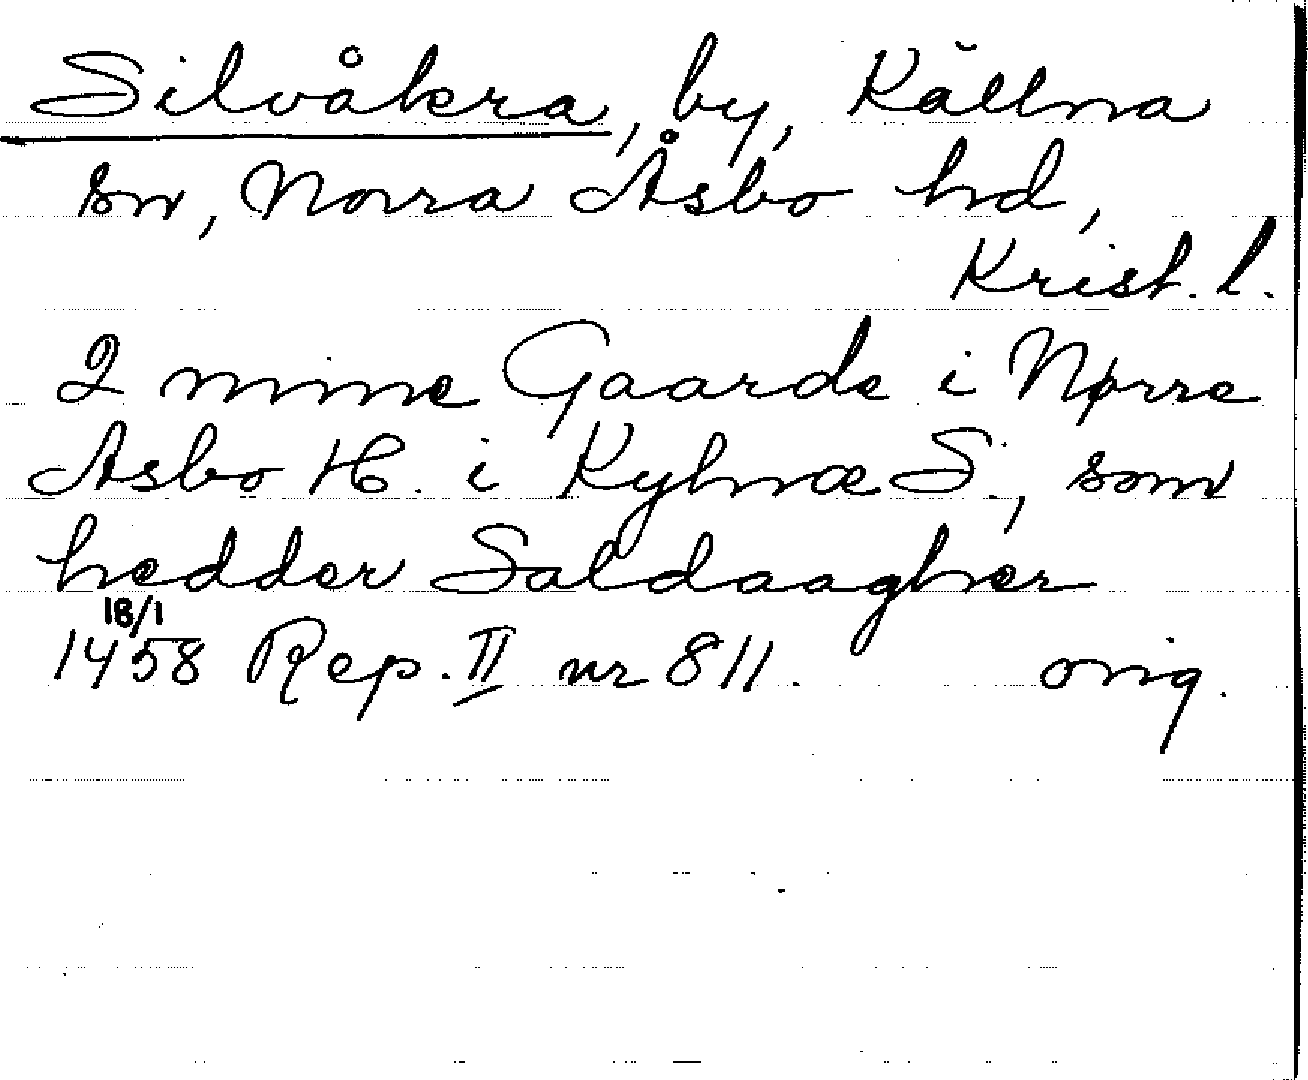 Silvåkra, by, Källna
sn, Norra Åsbo hd,
Krist. l.
2 mine Gaarde i Nørre
Asbo H. i Kylnæ S., som
hedder Saldaagher
18/1
1458 Rep. II nr 811. orig.